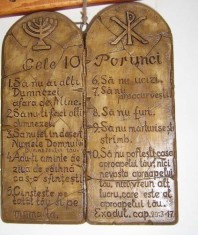 Cele 10 Porunci
1. Să nu ai alți
Dumnezei
afara de Mine.
2. Să nu-ți faci alți
dumnezei
3. Să nu iei in deșert
Numele Domnului
Dumnezeului tău
4. Adu-ți aminte de
ziua de odihnă
ca s-o sfințești
5. Cinstește pe
tatăl tău și pe
mama ta
6. Să nu ucizi
7. Să nu
8. Să nu furi.
9. Să nu marturisești
strimb.
10. Să nu poftești casa
aproapelui tău, nici
nevasta aproapelui
tău, nici vreun alt
lucru, care este al
aproapelui tău.
Exodul. cap. 20:3-17